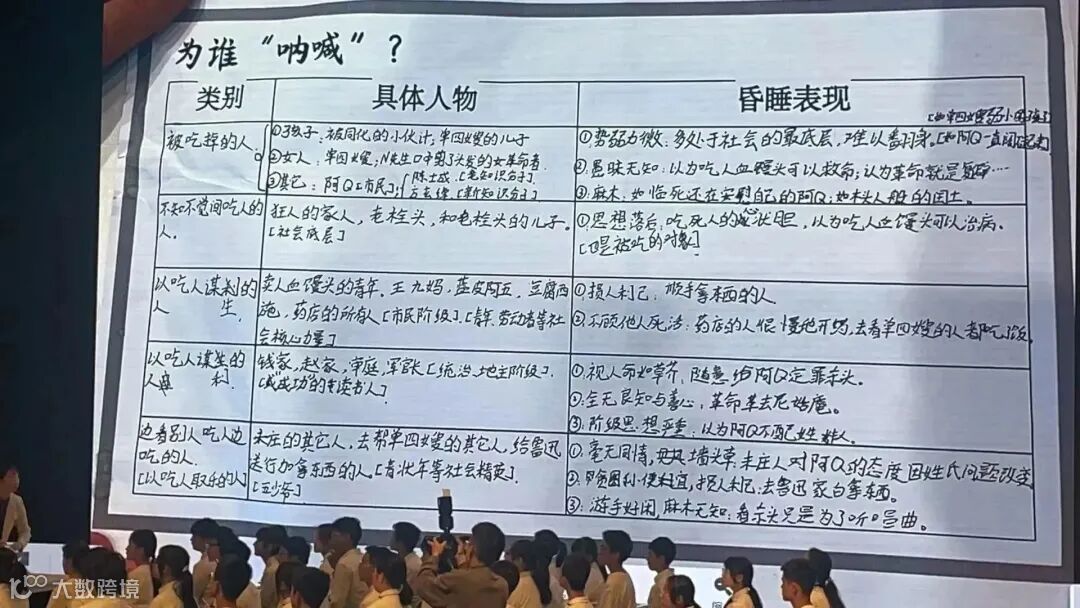 为谁“呐喊”？
类别 具体人物 昏睡表现
被吃掉的人。
①孩子：被同化的小伙计，单四嫂的儿子
②女人：单四嫂，N先生口中剪了头发的女革命者
③其它：阿Q[市民]，陈士成[老知识分子]
方玄绰[新知识分子]
①势弱力微：多处于社会的最底层，难以翻身。
②愚昧无知：以为吃人血馒头可以救命；认为革命就是
③麻木：如临死还在安慰自己的阿Q；如木头人般的闰土。
不知不觉间吃人的人。
狂人的家人，老栓头，和老栓头的儿子。
[社会底层]
①思想落后：吃死人的 胆，以为吃人血馒头可以治病。
[也是被吃的对象]
以吃人谋利的人
卖人血馒头的青年，王九妈，蓝皮阿五，豆腐西
施，药店的所有人[市民阶级]，[青年劳动者等社
会核心力量]
①损人利己：顺手拿东西的人
②不顾他人死活：药店的人 慢抓药，去看单四嫂的人都吃了饭。
以吃人谋生的人
钱家，赵家，审庭，军官[统治、地主阶级]，
[成功的读书人]
①视人命如草芥，随意给阿Q定罪杀头。
②全无良知与善心，革命革去尼姑庵。
③阶级思想严重：以为阿Q不配姓赵。
边看别人吃人边
吃的人。
[以吃人取乐的人]
未庄的其它人，去帮单四嫂的其它人，给鲁迅
送行加拿东西的人。[青壮年等社会精英]
①毫无同情，墙头草：未庄人对阿Q的态度因姓氏问题改变
②贪图小便宜，损人利己：去鲁迅家白拿东西。
③游手好闲，麻木无知：看杀头只是为了听口号曲。
大数跨境